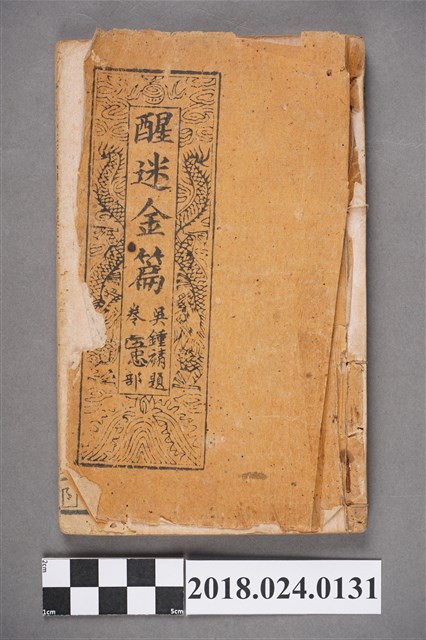 醒迷金篇
吳鍾靖題
卷忠部
2cm
1cm
5cm
2018.024.0131